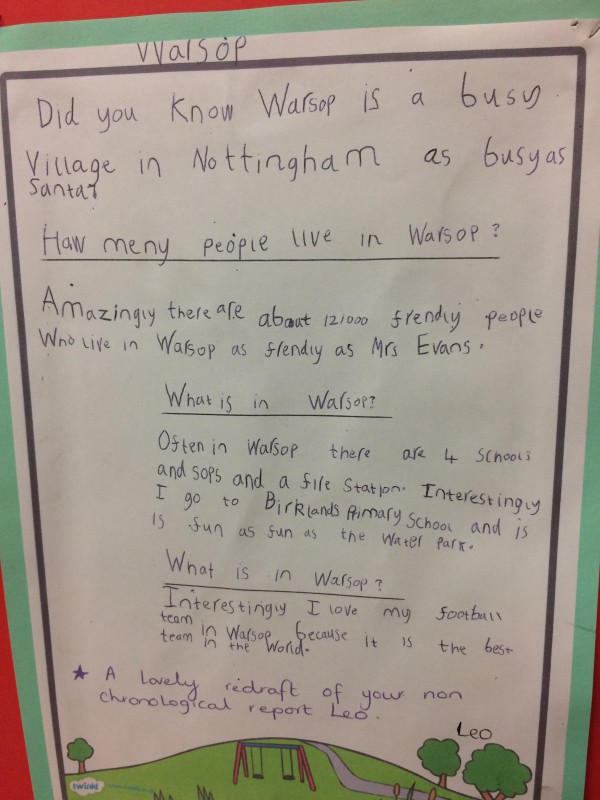 Warsop
Did you Know Warsop is a busy
Village in Nottingham as busy as
Santa?
Haw meny people live in Warsop?
Amazingly there are about 12,000 frendly people
Who live in Warsop as frendly as Mrs Evans.
What is in Warsop?
Often in Warsop there are 4 schools
and sops and a fire Station. Interestingly
I go to Birklands Primary School and is
is fun as fun as the Water Park.
What is in Warsop?
Interestingly I love my football
team in Warsop because it is the best
team in the World.
★ A lovely redraft of your non
chronological report Leo.
Leo
twinkl